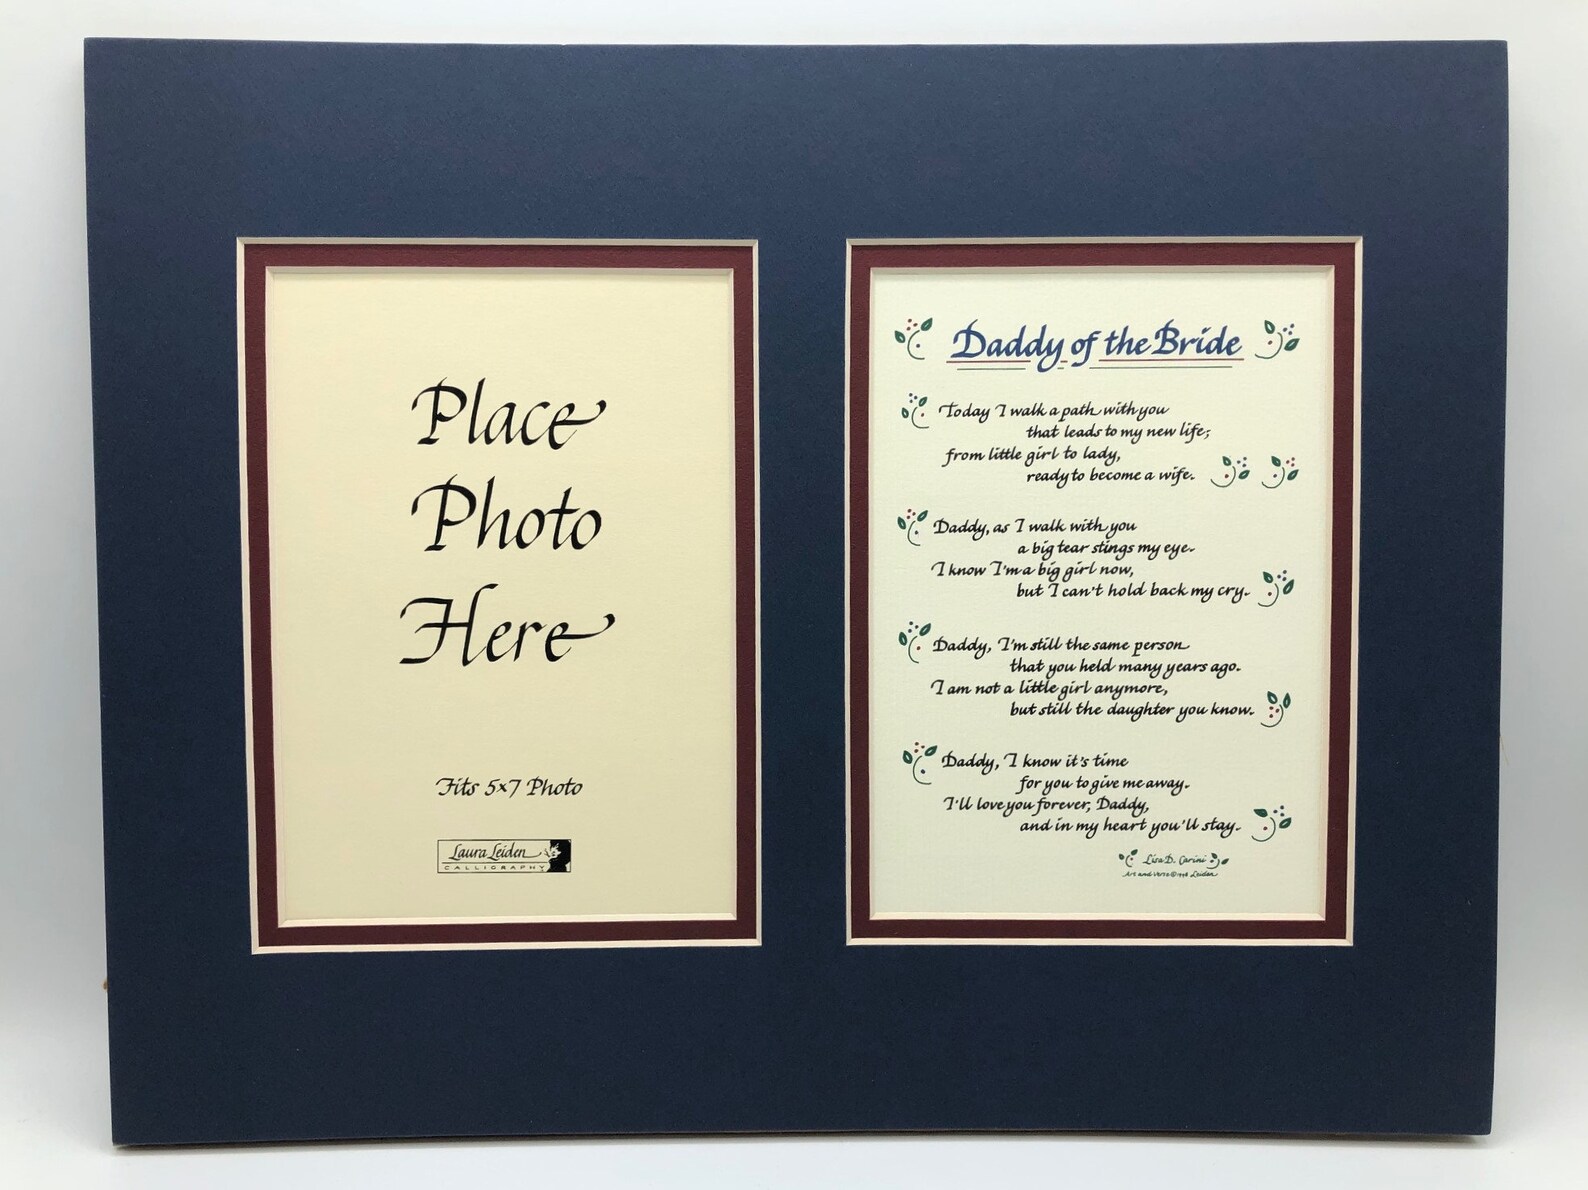 Place
Photo
Here
Fits 5x7 Photo
Laura Leiden
CALLIGRAPHY
Daddy of the Bride
Today I walk a path with you
that leads to my new life;
from little girl to lady,
ready to become a wife.
Daddy, as I walk with you
a big tear stings my eye.
I know I'm a big girl now,
but I can't hold back my cry.
Daddy, I'm still the same person
that you held many years ago.
I am not a little girl anymore,
but still the daughter you know.
Daddy, I know it's time
for you to give me away.
I'll love you forever, Daddy,
and in my heart you'll stay.
Lisa D. Carini
Art and Verse © 1998 Leiden